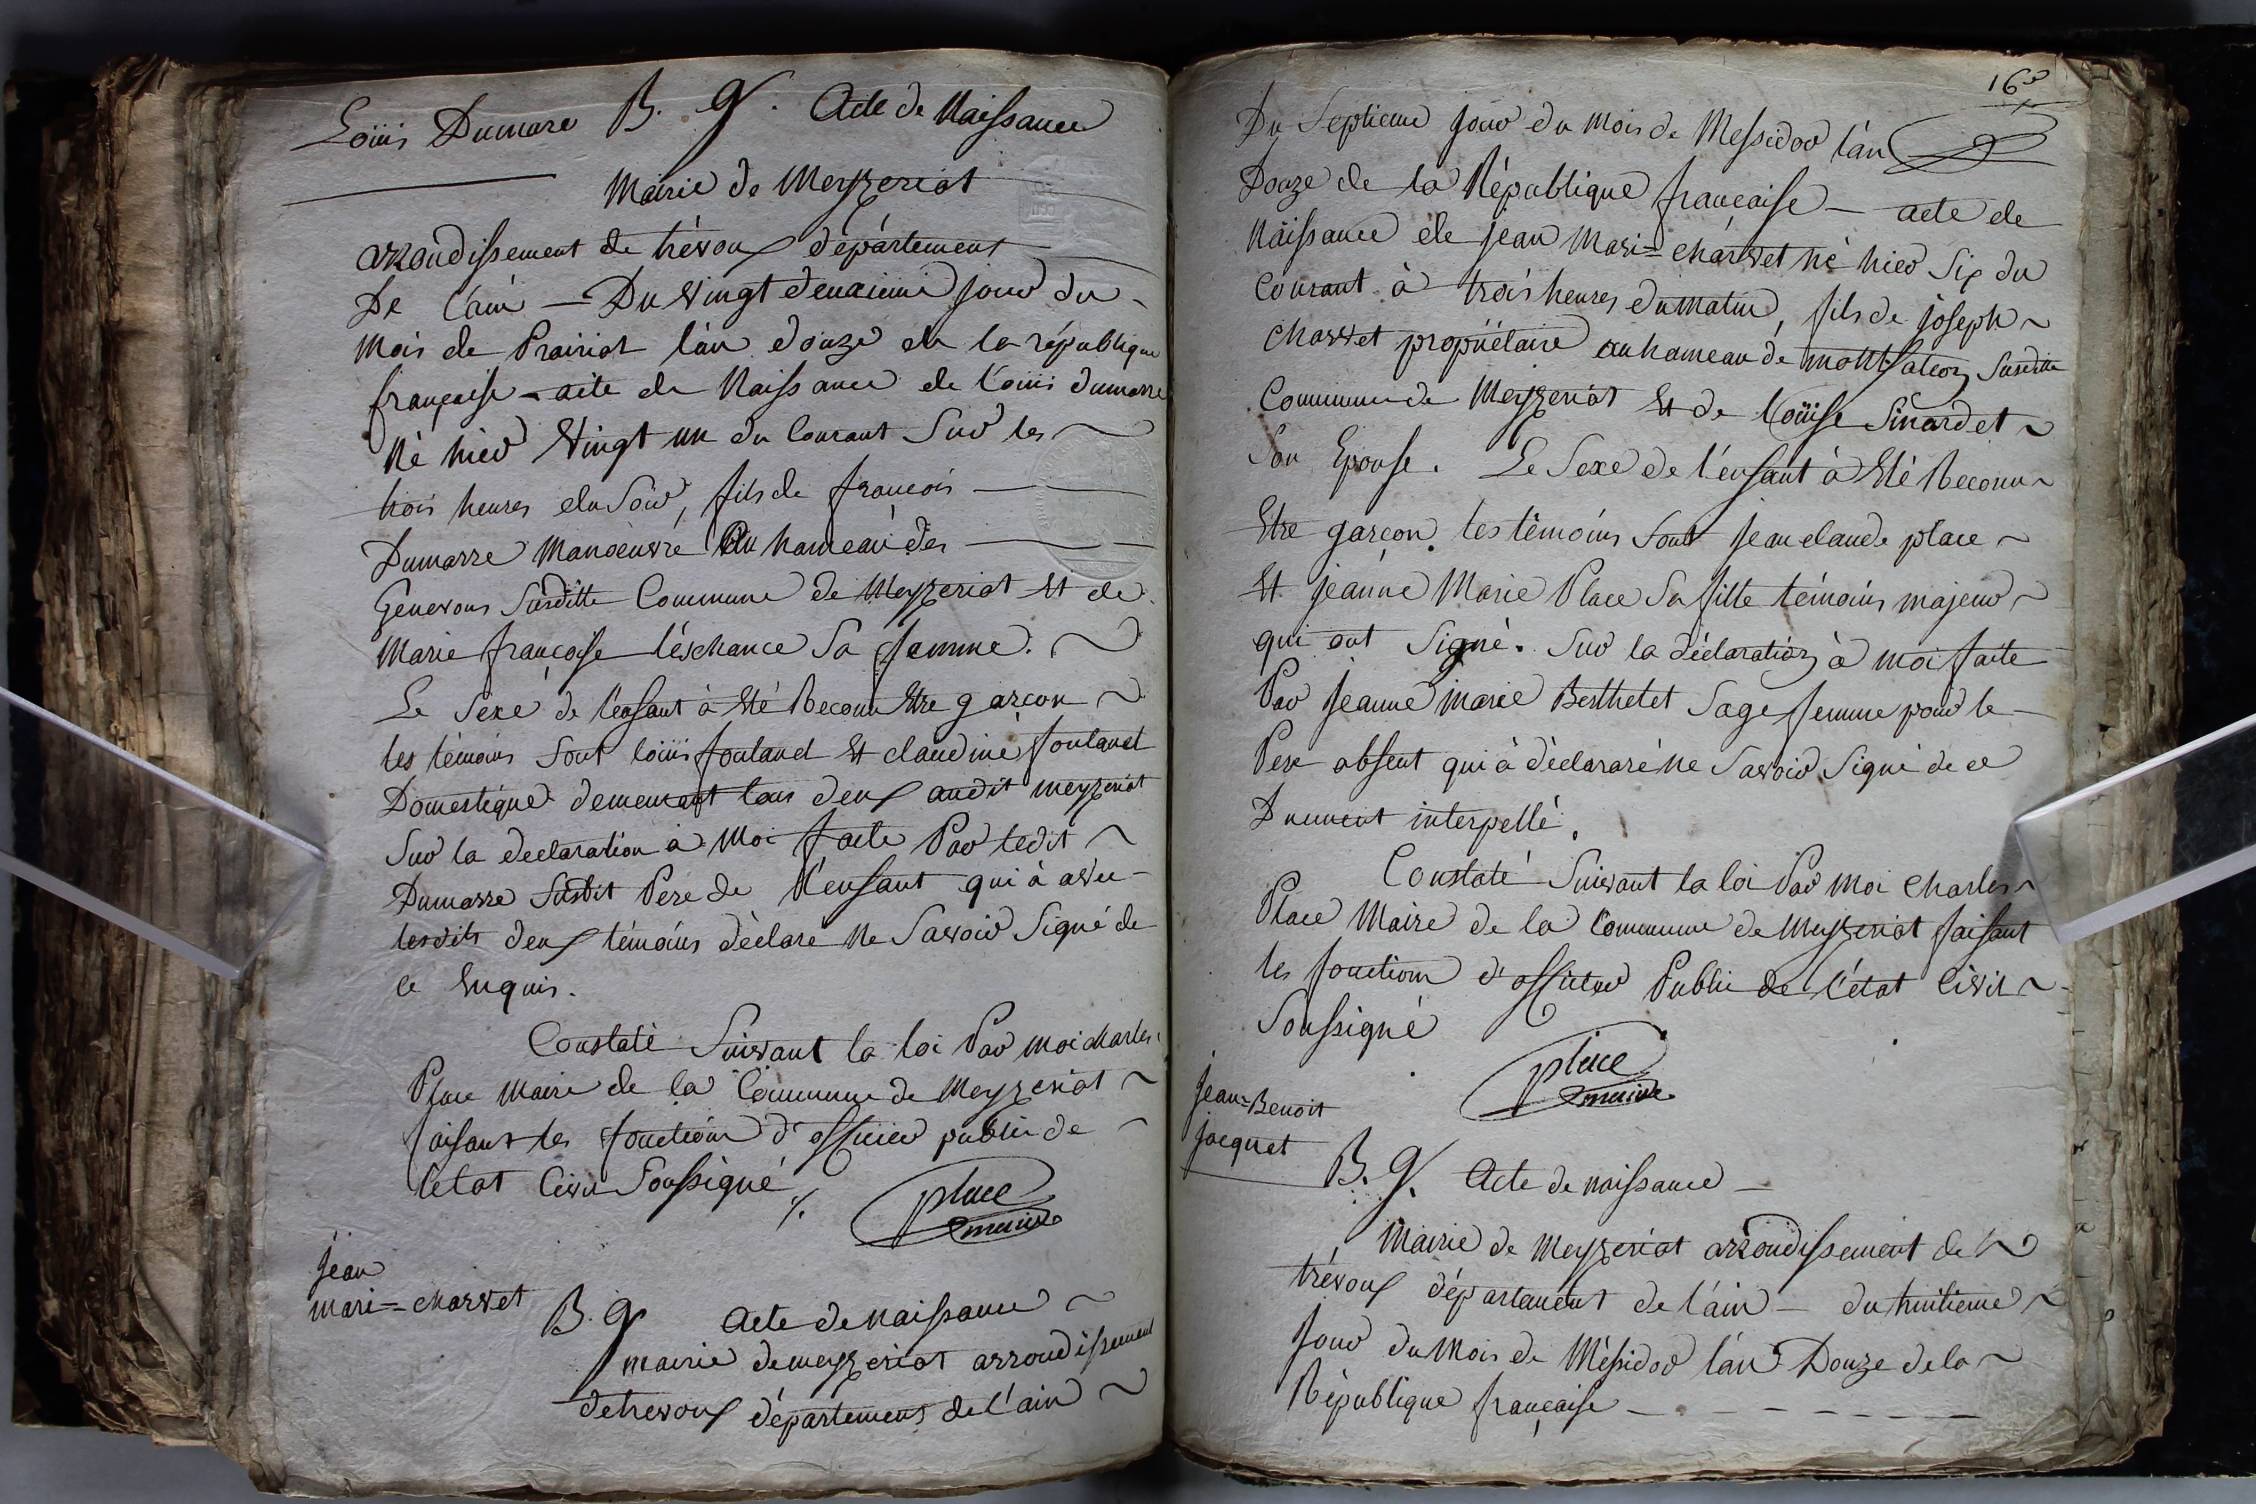 Loüis Dumare B. g. Acte de Naissance
Mairie de Meyzeriat
arrondissement de trévoux département
De l'ain — Du vingt deuxieme jour du
Mois de Prairial l'an douze de la république
française - acte de Naissance de Loüis dumarre
Né hier vingt un du Courant Sur les
trois heures du Soir, fils de françois
Dumarre Manoeuvre Au hameau des
Génevous Susditte Commune de Meyzeriat Et de
Marie françoise léschance Sa femme.
Le Sexe de l'enfant à Eté Reconu Etre garcon
les témoins Sont loüis foulanet Et claudine foulanet
Domestique demeurant tous deux audit meyzeriat
Sur la declaration à Moi faite Par ledit
Dumarre Susdit Pere de l'enfant qui à avec
lesdits deux témoins déclaré Ne Savoir Signé de
ce Enquis.
Constaté Suivant la loi Par moi charles
Place Maire de la Commune de Meyzeriat
faisant les fonctions d'officier public de
l'etat Civil Soussigné
place
maire
Jean
mari= charvet
B. g Acte de naissance
mairie de meyzeriat arrondissement
de trevoux département de l'ain
16
Du Septieme jour du Mois de Messidor l'an
Douze de la République française — acte de
Naissance de jean Mari= charvet né hier Six du
Courant à trois heures du Matin, fils de joseph
charvet propriétaire au hameau de Susditte
Commune de Meyzeriat Et de Loüise Sinardet
Son Epouse. Le Sexe de l'enfant à Eté Reconu
Etre garçon. les témoins Sont Jean claude place
Et Jeanne Marie Place Sa fille témoins majeur
qui ont Signé. Sur la déclaration à moi faite
Par Jeanne marie Berthelet Sage femme pour le
Pere absent qui à déclararé ne Savoir Signé de ce
Dument interpellé.
Constaté Suivant la loi Par Moi Charles
Place Maire de la Commune de Meyzeriat faisant
les fonctions d'officier Public de l'état Civil
Soussigné
place
maire
Jean= Benoit
jacquet
B. g. Acte de naissance —
Mairie de Meyzeriat arrondissement de
trévoux département de l'ain — du huitieme
Jour du Mois de Méssidor l'an Douze de la
République française —